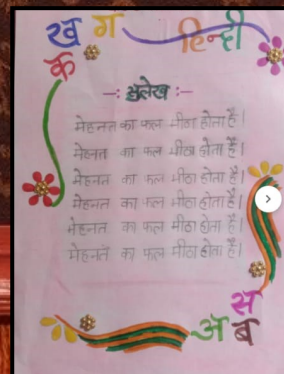 ख ग हिन्दी
क
-: सुलेख :-
मेहनत का फल मीठा होता है।
मेहनत का फल मीठा होता है।
मेहनत का फल मीठा होता है।
मेहनत का फल मीठा होता है।
मेहनत का फल मीठा होता है।
मेहनत का फल मीठा होता है।
स
अ ब